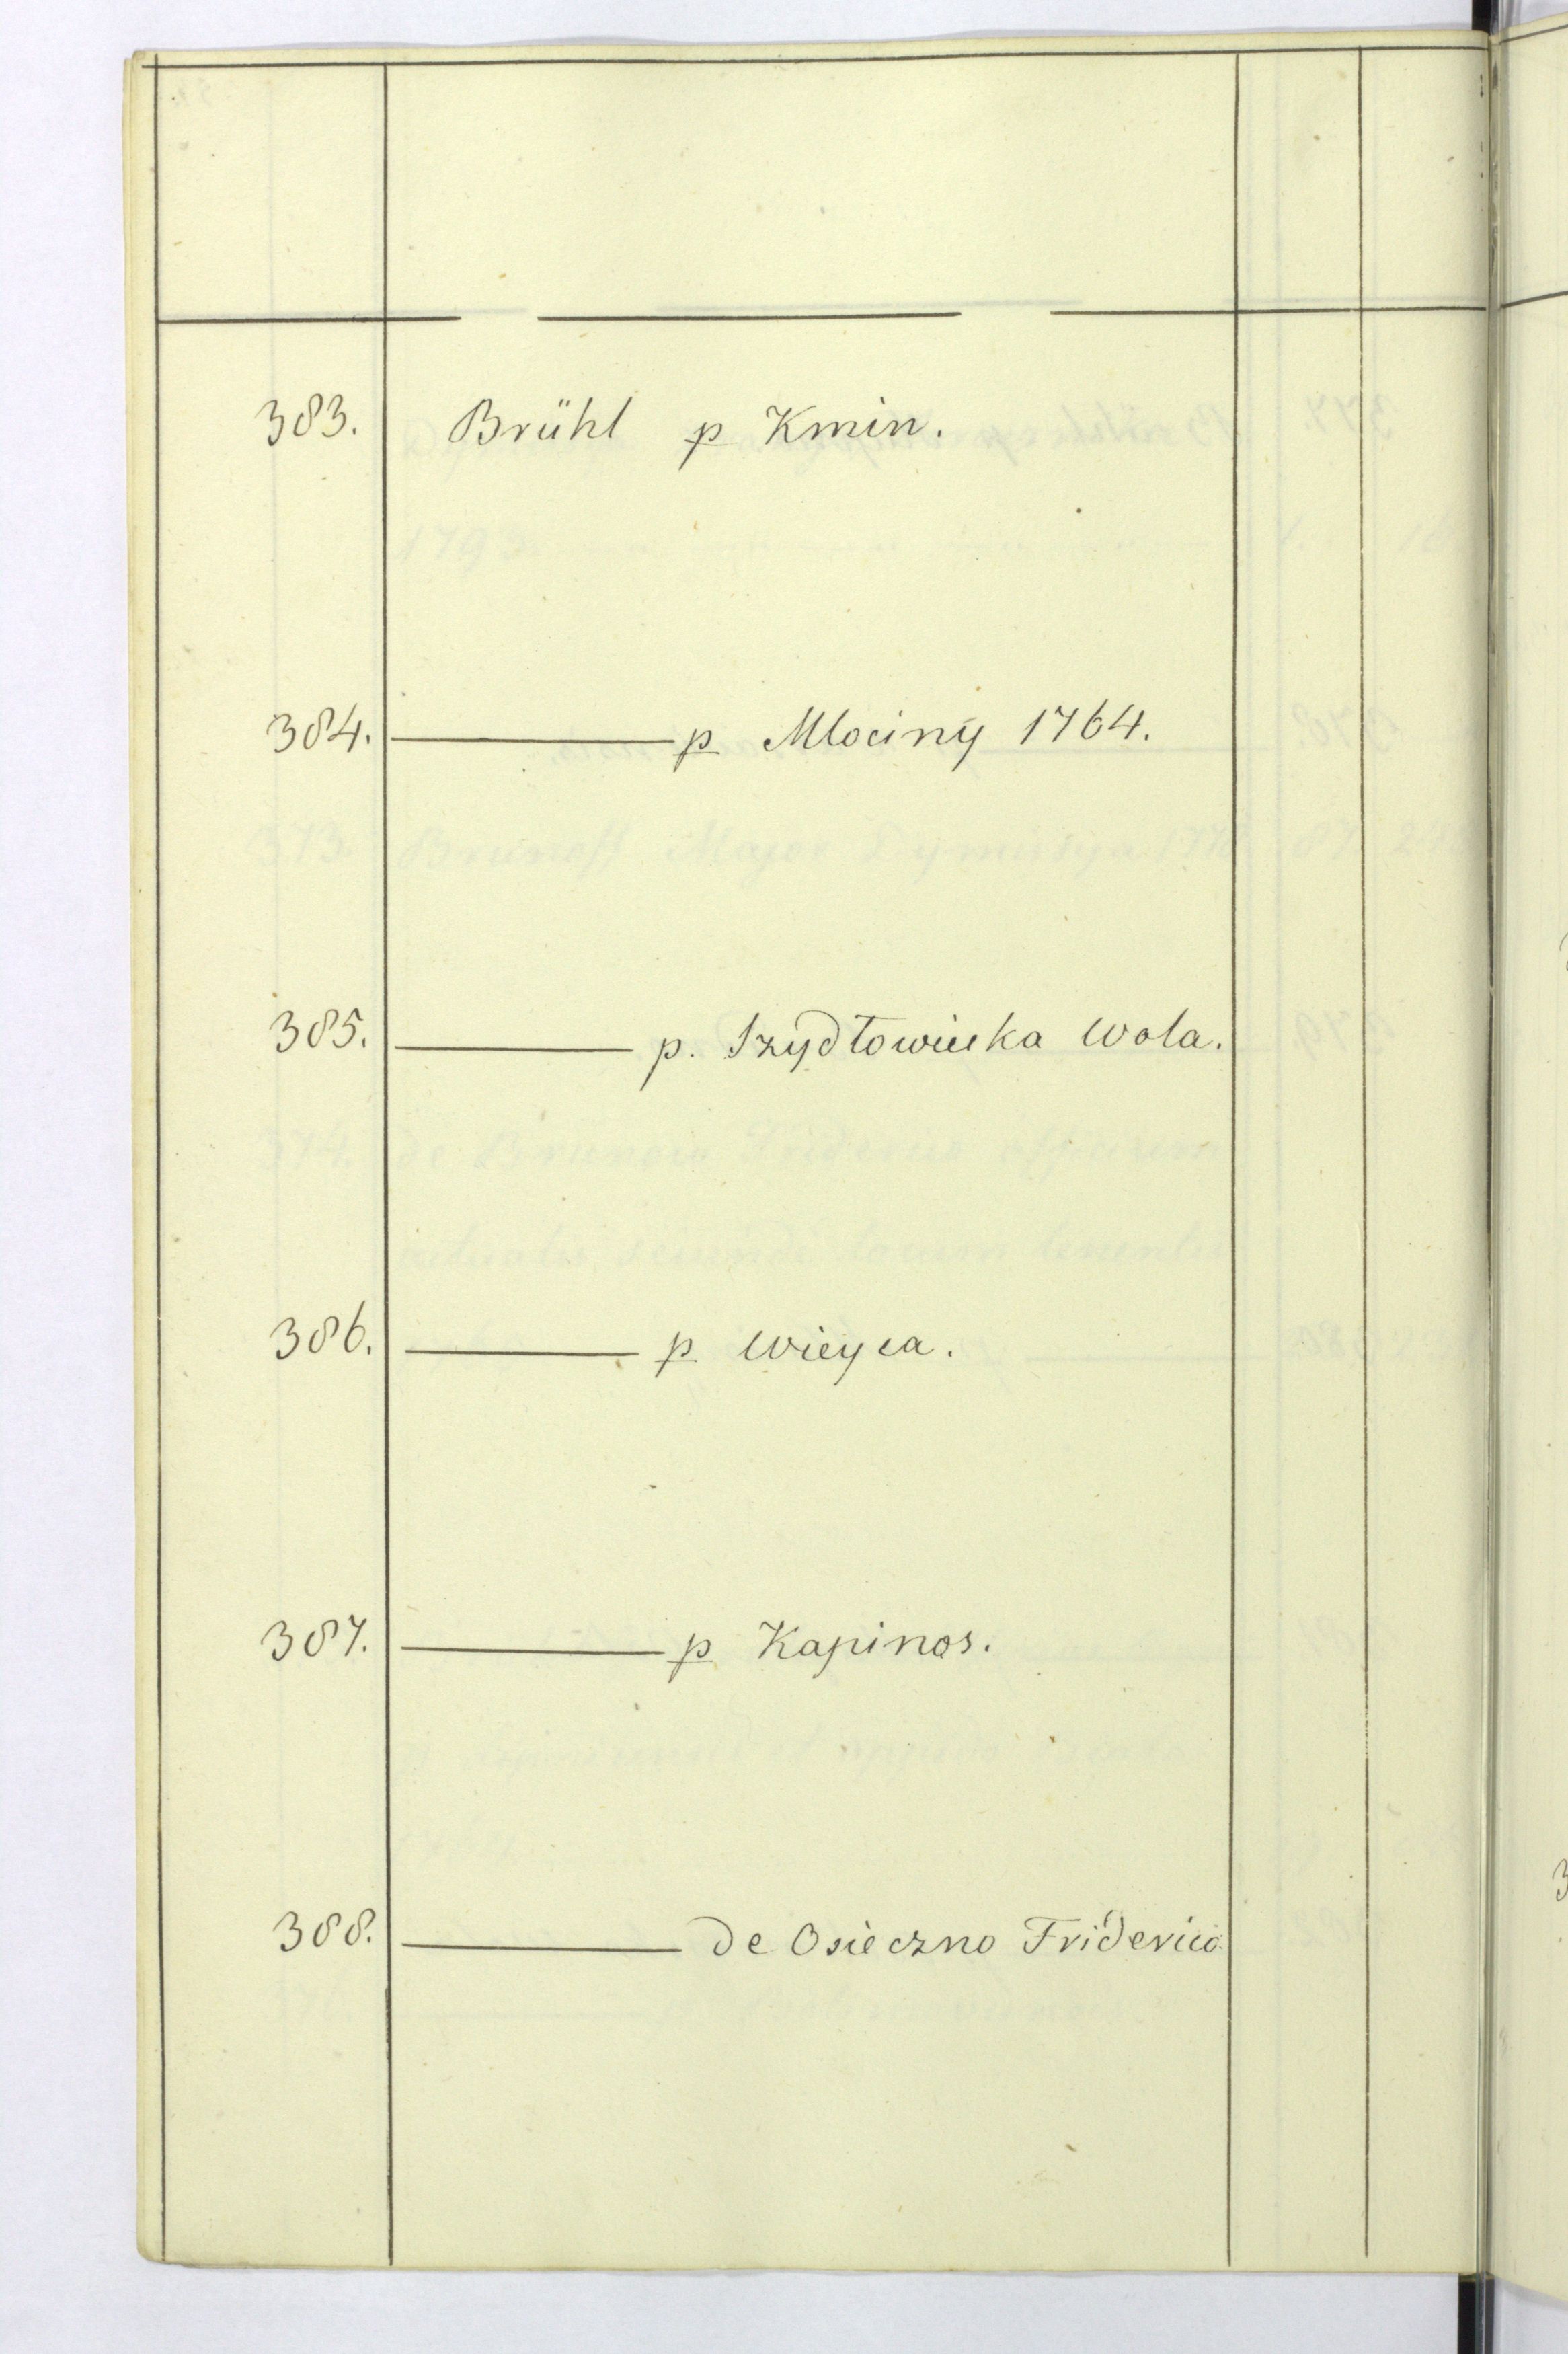 383. Brühl p Kmin.
384. ——— p Mlociny 1764.
385. ——— p. Szydłowiecka Wola.
386. ——— p Wieyca.
387. ——— p Kapinos.
388. ——— de Osieczno Friderico